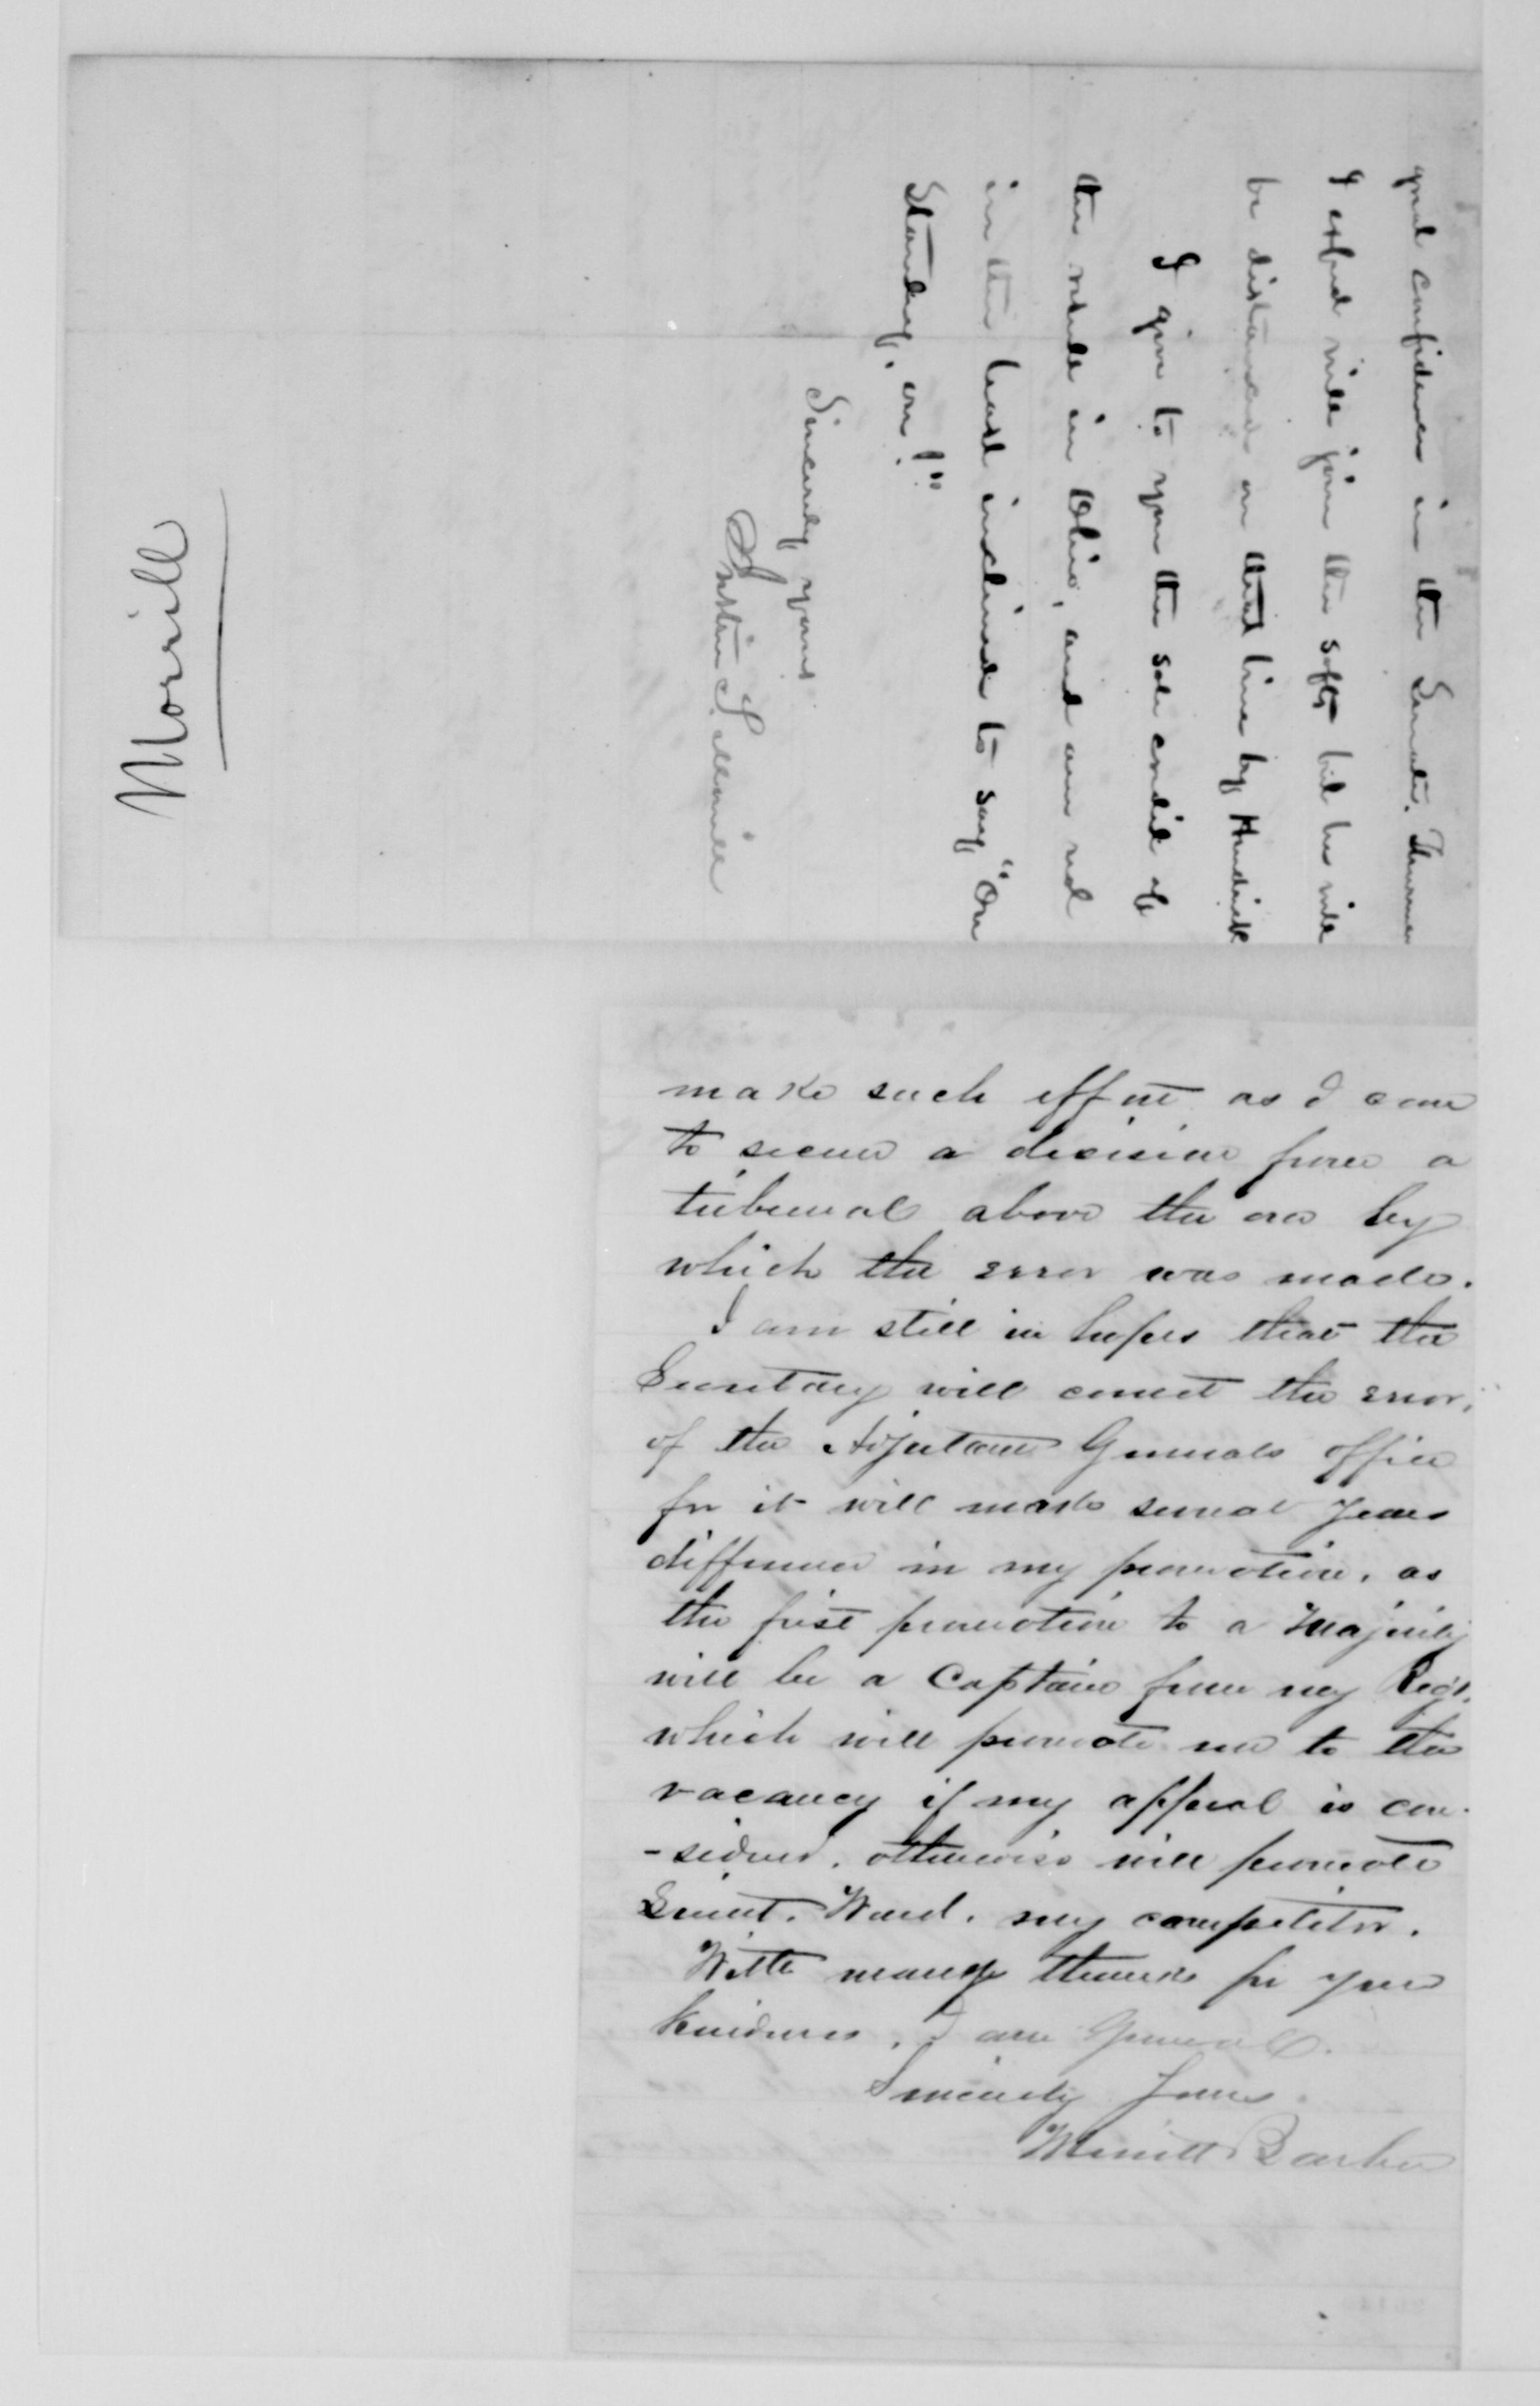 great confidence in the Senate. Thurman
I expect will join the softs but he will
be distanced on that line by Hendick
I give to you the sole credit of
the result in Ohio, and am not
in the least inclined to say "On
Standley, on!"
Sincerely yours
Justin S. Morrill
Morrill
make such effort as I can
to secure a decision from a
tribunal above the one by
which the error was made.
I am still in hopes that the
Secretary will correct the error,
of the Adjutant Generals office
for it will make several years
difference in my promotion, as
the first promotion to a Majority
will be a Captain from my Regt.
which will promote me to the
vacancy if my appeal is con-
-sidered, otherwise will promote
Lieut. Ward. my competitor.
With many thanks for your
kindness, I am General.
Sincerely Yours
Merritt Barber